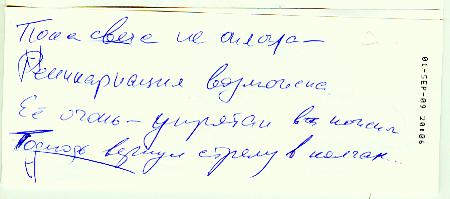 Пока свеча не оплыла –
Реинкарнация возможна
Её огонь – упрятан в ножны
Господь вернул стрелу в колчан...
01-SEP-09 20:06